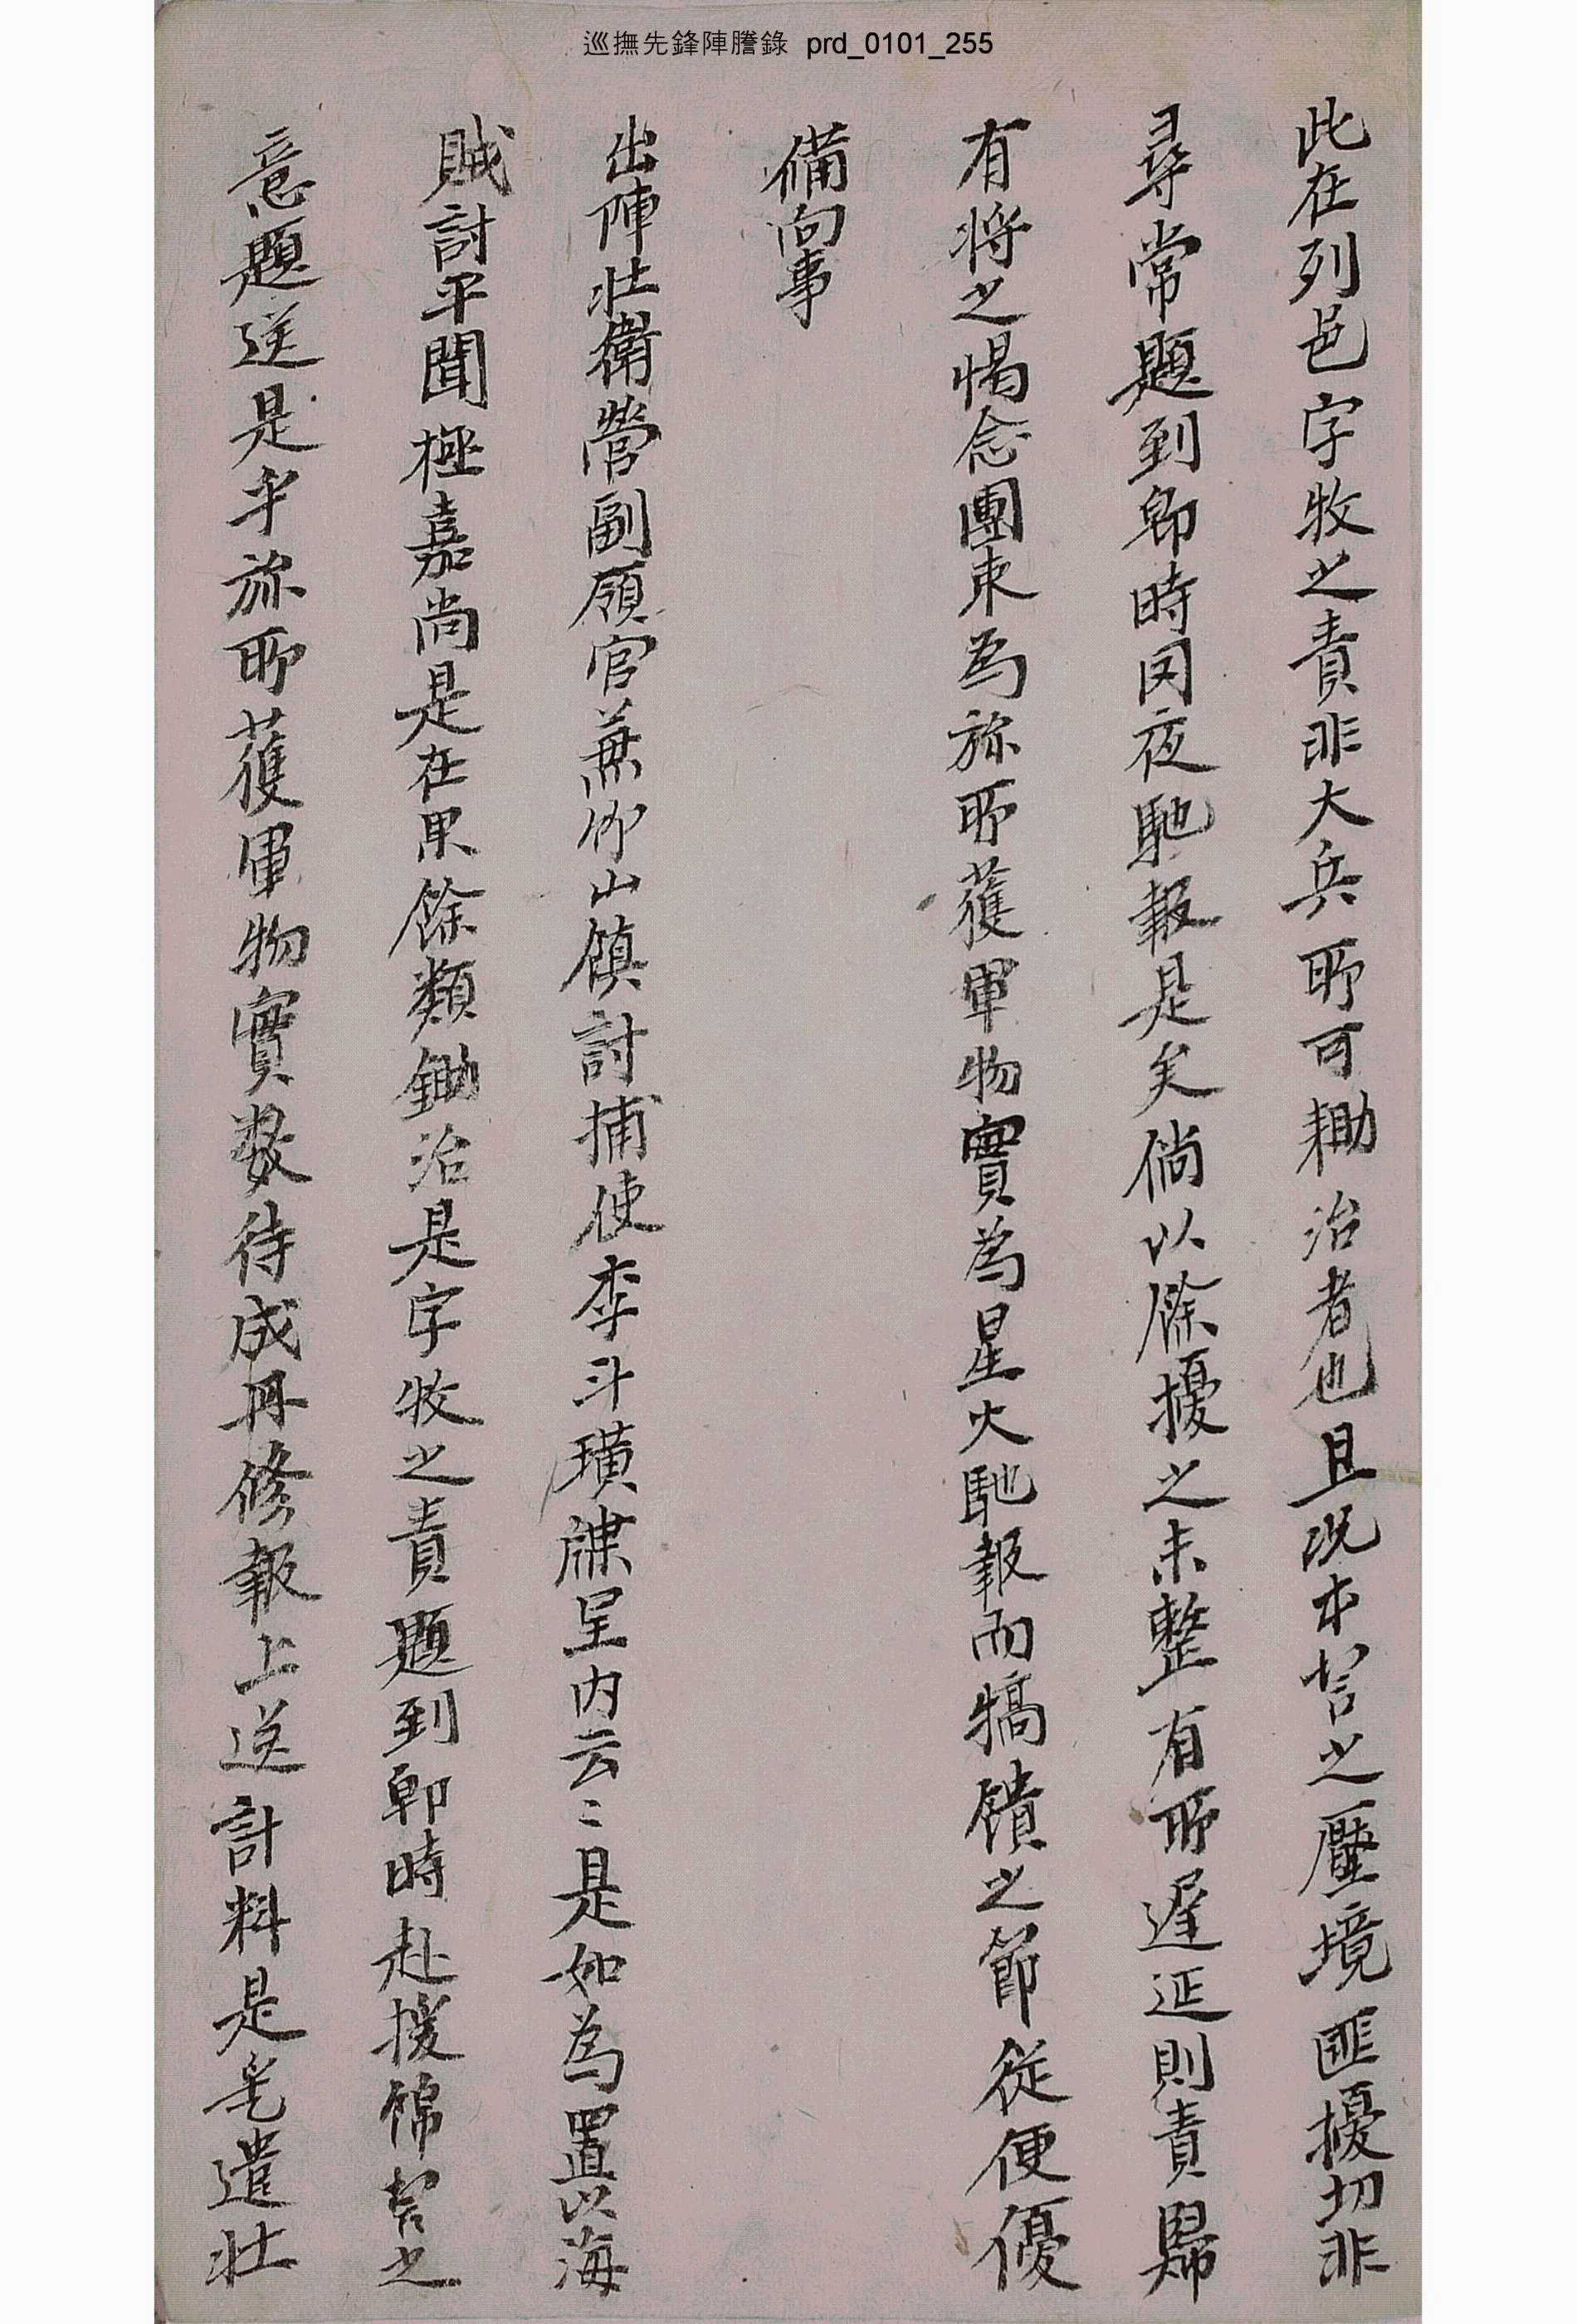 巡撫先鋒陣謄錄 prd_0101_255
此在列邑字牧之責非大兵所可耡治者也且況本営之壓境匪擾切非
尋常題到卽時罔夜馳報是矣倘以餘擾之未整有所遲延則責歸
有將之惕念團束爲旀所獲軍物實爲星火馳報而犒饋之節從便優
備向事
出陣壯衛營副領官兼竹山鎮討捕使李斗璜牒呈內云〻是如爲置以海
賊討平聞極嘉尙是在果餘類鋤治是字牧之責題到卽時赴援錦営之
意題送是乎旀所獲軍物實數待成冊修報上送計料是乼遣壯